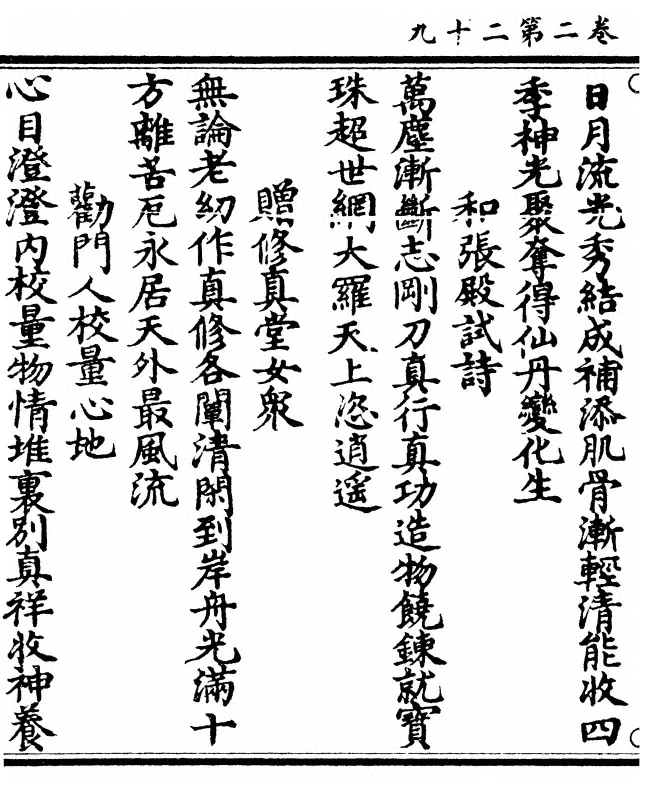 卷二第二十九
日月流光秀結成補添肌骨漸輕清能收四
季神光聚奪得仙丹變化生
和張殿試詩
萬塵漸斷志剛刀真行真功造物饒鍊就寶
珠超世網大羅天上恣逍遥
贈修真堂女衆
無論老幼作真修各闡清閑到岸舟光滿十
方離苦厄永居天外最風流
勸門人校量心地
心目澄澄内校量物情堆裏別真祥收神養